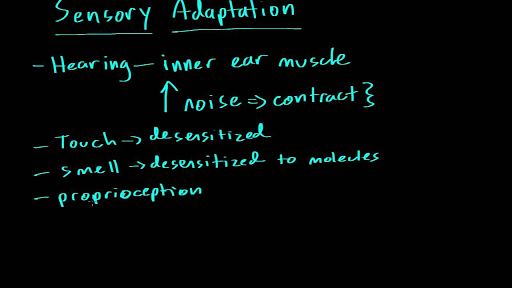 Sensory Adaptation
- Hearing - inner ear muscle
↑ noise => contract }
- Touch -> desensitized
- smell -> desensitized to molecules
- proprioception